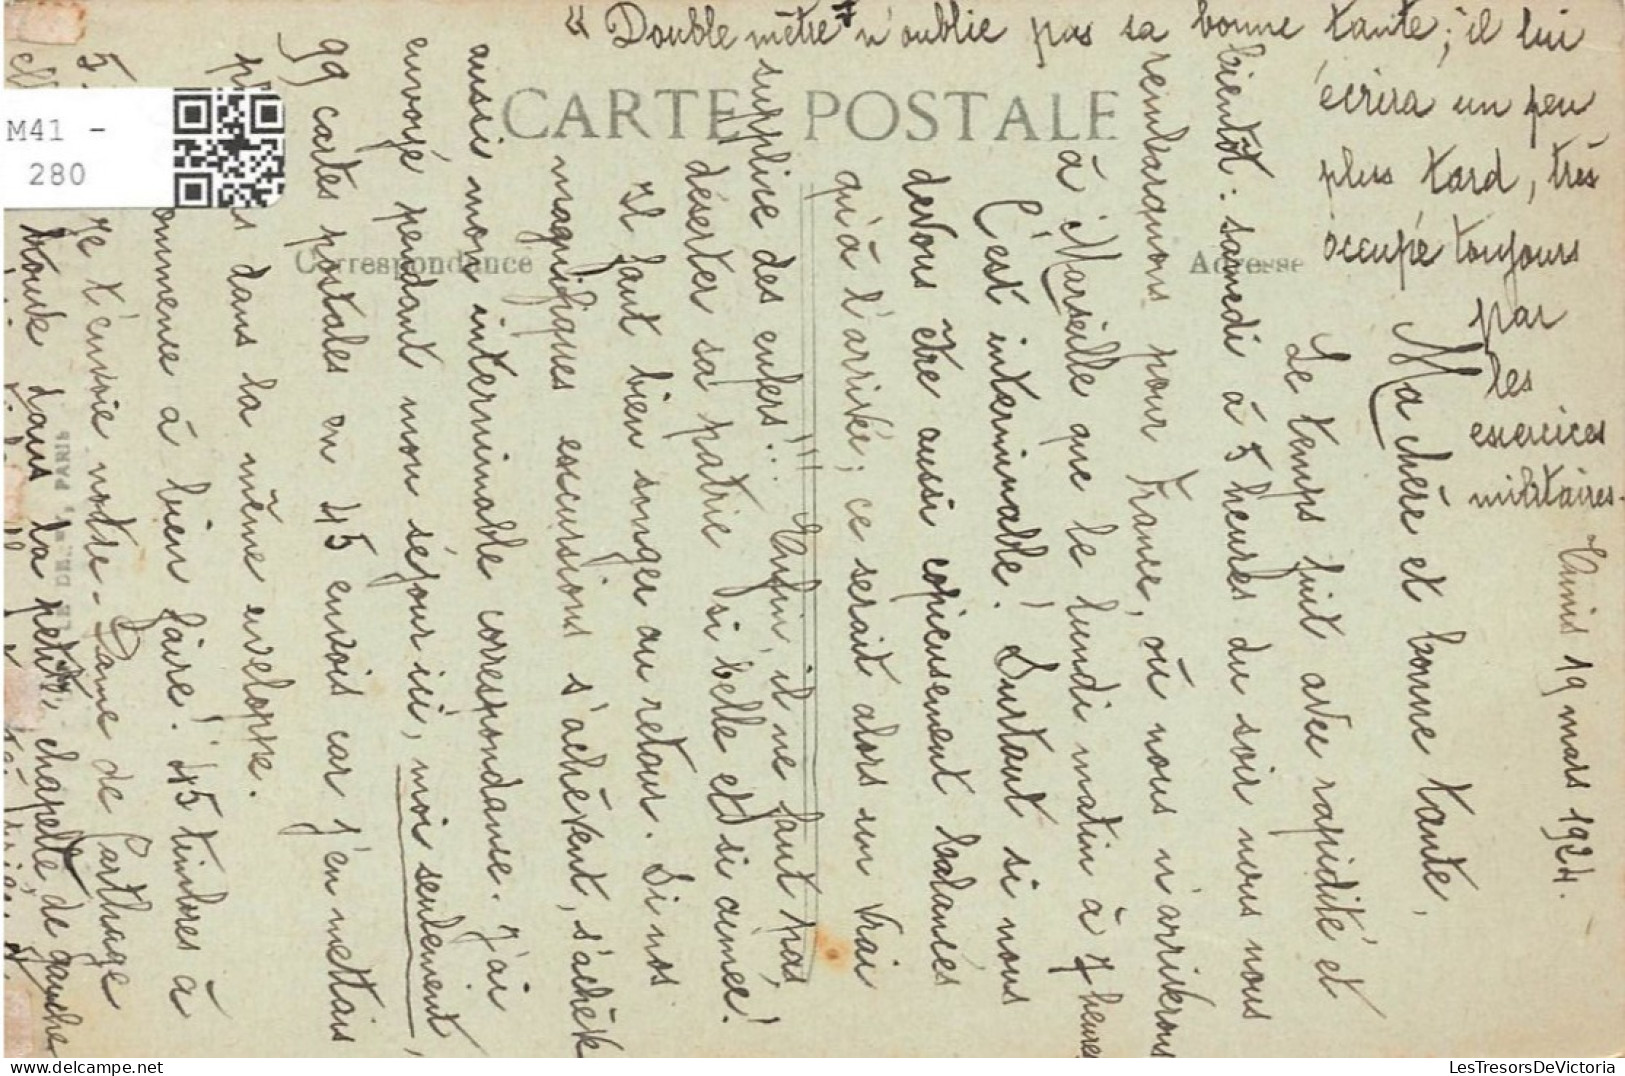 Tunis 19 mars 1924.
Ma chère et bonne tante,
Le temps fuit avec rapidité et
bientôt : samedi à 5 heures du soir nous nous
rembarquons pour France, où nous n'arriverons
à Marseille que le lundi matin à 7 heures
C'est interminable! Surtout si nous
devons être aussi copieusement balancés
qu'à l'arrivée; ce serait alors un vrai
supplice des enfers...!!! Enfin, il ne faut pas,
déserter sa patrie si belle et si aimée!
Il faut bien songer au retour. Si nos
magnifiques excursions s'achèvent, s'achève
aussi mon interminable correspondance. J'ai
envoyé pendant mon séjour ici, moi seulement,
99 cartes postales en 45 envois car j'en mettais
dans la même enveloppe.
à bien faire! 45 timbres à
5
Je t'envoie notre-Dame de Carthage
dans la petite chapelle, de gauche
"Double mètre" n'oublie pas sa bonne tante; il lui
écrira un peu
plus tard, très
occupé toujours
par
les
exercices
militaires.
CARTE POSTALE
Correspondance
Adresse
PARIS
M41 -
280
LesTresorsDeVictoria